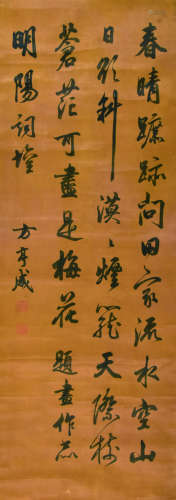 春晴蹤跡問田家流水空山
日欲斜漠漠煙籠天際樹
蒼茫可盡是梅花 題畫作應
明陽詞壇
方亨咸